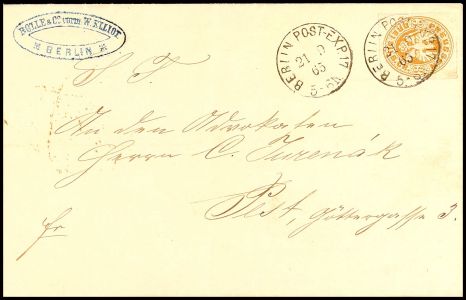 BOLLE & Co vorm. W. ELLIOT
BERLIN
BERLIN POST-EXP. 17
21 9
65
5-6N
BERLIN POST
65
5-6
S. T.
An den Advokaten
Herrn C. Turenák
Pest, Göttergasse 3.
fr